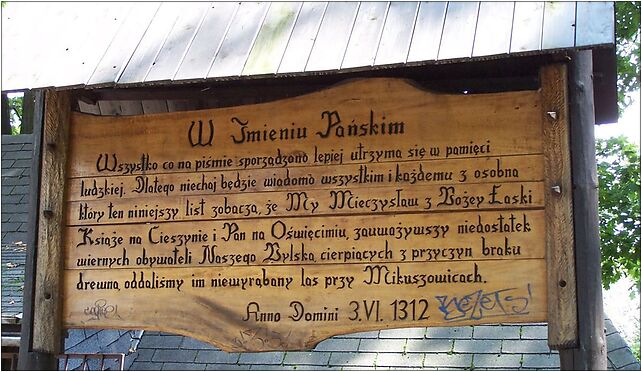 W Imieniu Pańskim
Wszystko co na piśmie sporządzono lepiej utrzyma się w pamięci
ludzkiej. Dlatego niechaj będzie wiadomo wszystkim i każdemu z osobna
który ten niniejszy list zobaczą, że My Mieczysław z Bożey Łaski
Książe na Cieszynie i Pan na Oświęcimiu, zauważywszy niedostatek
wiernych obywateli Naszego Bylska, cierpiących z przyczyn braku
drewna, oddaliśmy im niewyrąbany las przy Mikuszowicach.
Anno Domini 3.VI. 1312